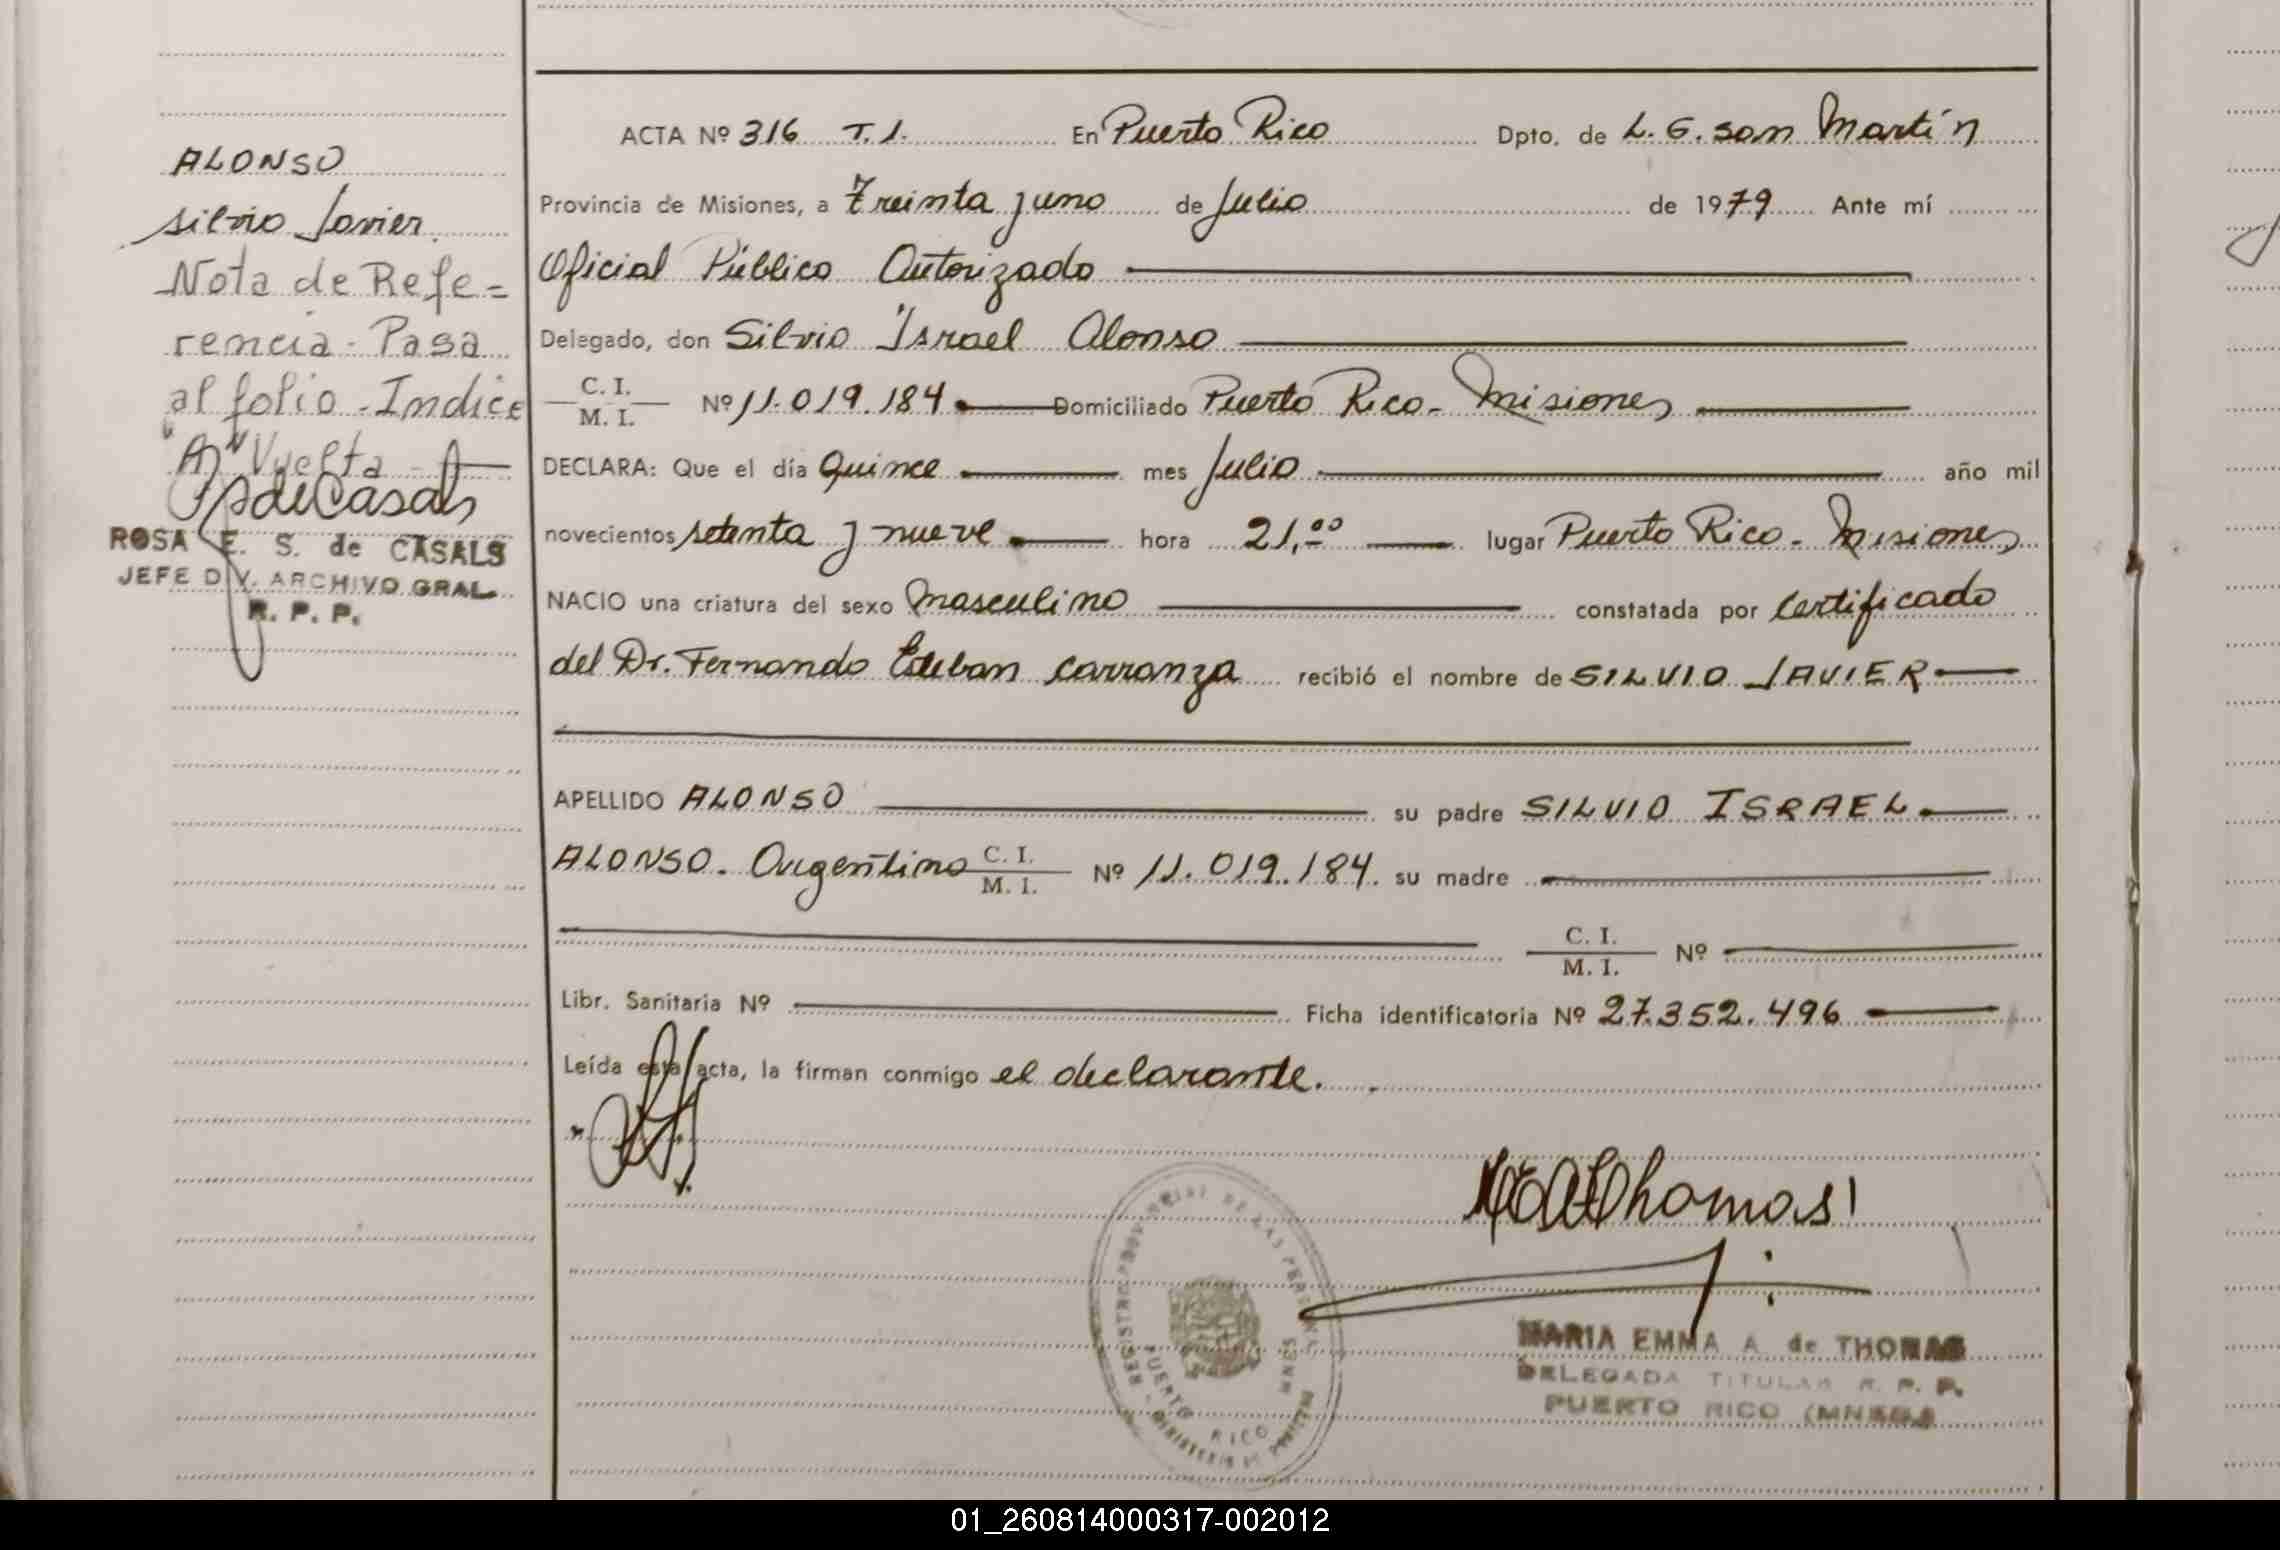 ALONSO
Silvio Javier.
Nota de Refe=
rencia - Pasa
al folio - Indice
"A" Vuelta -
ROSA E. S. de CASALS
JEFE DIV. ARCHIVO GRAL.
R. P. P.
ACTA Nº 316 T. 1. En Puerto Rico Dpto. de L. G. san Martín
Provincia de Misiones, a treinta y uno de Julio de 1979 Ante mí
Oficial Público Autorizado
Delegado, don Silvio Israel Alonso
C. I.
M. I. Nº 11.019.184 Domiciliado Puerto Rico - Misiones
DECLARA: Que el día Quince mes Julio año mil
novecientos setenta y nueve hora 21,00 lugar Puerto Rico - Misiones
NACIO una criatura del sexo masculino constatada por certificado
del Dr. Fernando Esteban Carranza recibió el nombre de SILVIO JAVIER
APELLIDO ALONSO su padre SILVIO ISRAEL
ALONSO. Argentino C. I.
M. I. Nº 11.019.184. su madre
C. I.
M. I. Nº
Libr. Sanitaria Nº Ficha identificatoria Nº 27.352.496
Leída esta acta, la firman conmigo el declarante.
REGISTRO PROVINCIAL DE LAS PERSONAS
PUERTO RICO MNES
MARIA EMMA A. de THOMAS
DELEGADA TITULAR R. P. P.
PUERTO RICO (MNES.)
01_260814000317-002012